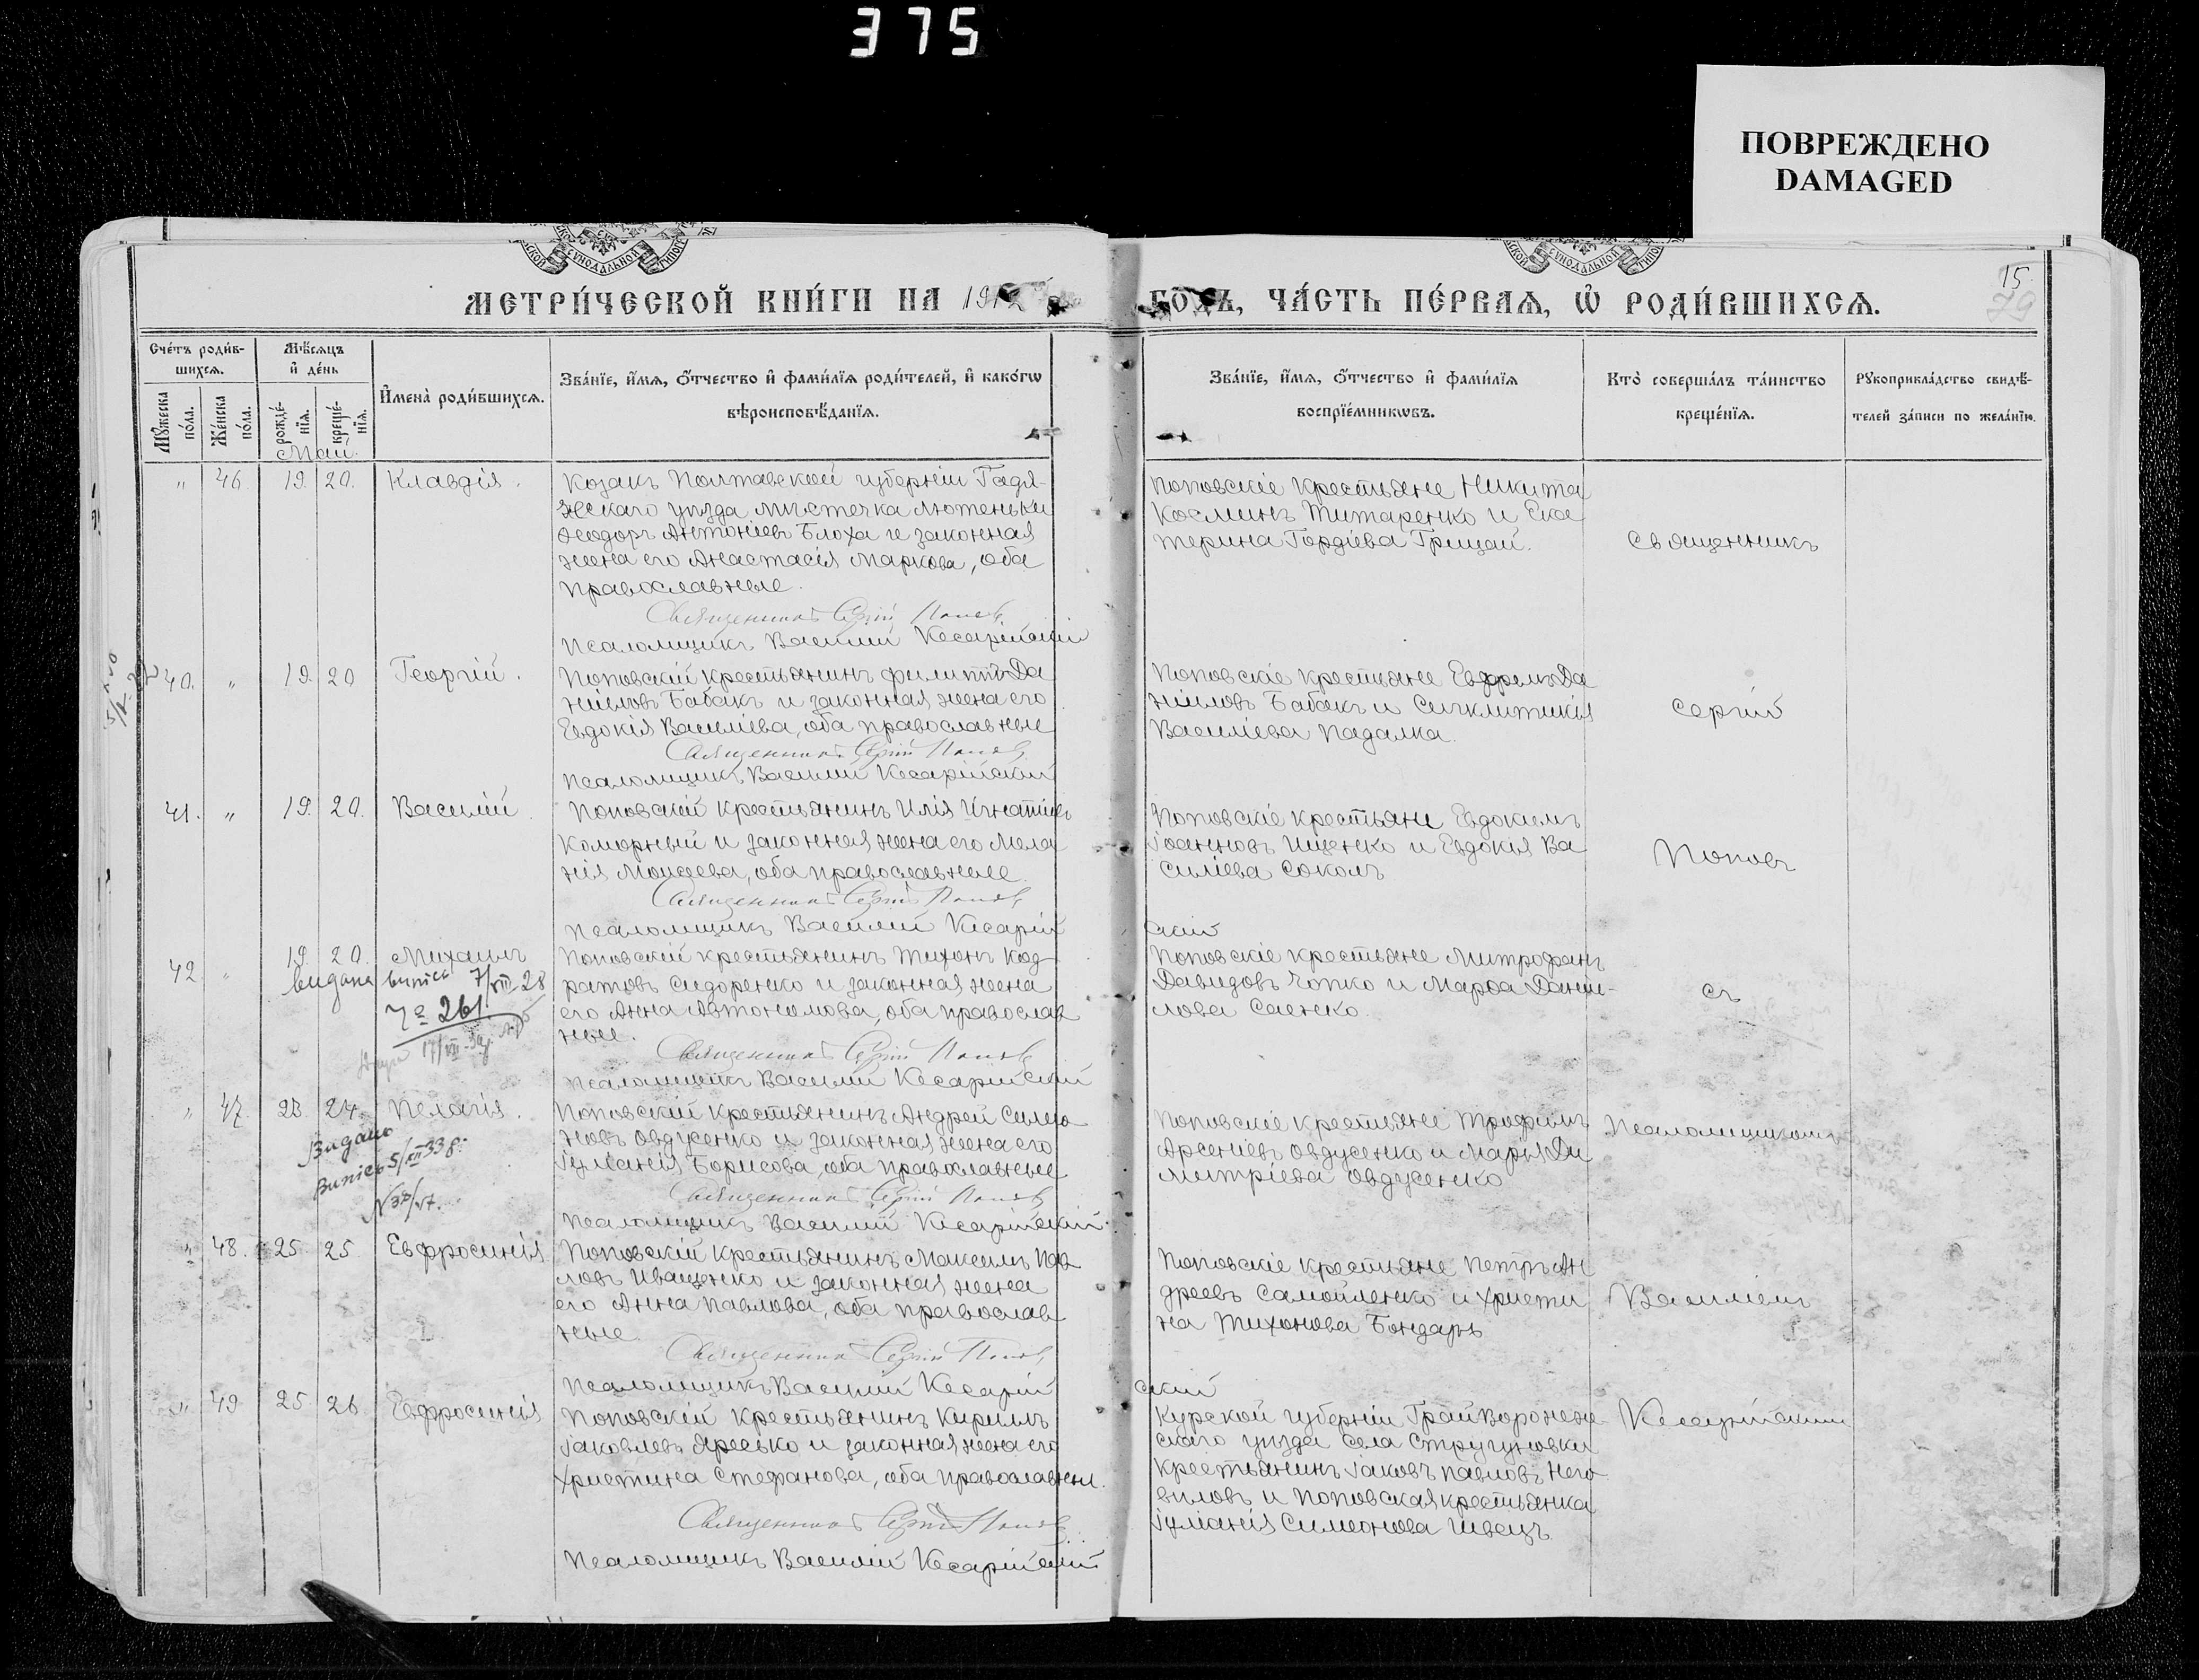 375
ПОВРЕЖДЕНО
DAMAGED
15.
79
МЕТРИ́ЧЕСКОЙ КНИ́ГИ НА 1912
ГО́ДЪ, ЧА́СТЬ ПЕ́РВАѦ, Ѡ҆ РОДИ́ВШИХСѦ.
Сче́тъ роди́в-
шихсѧ.
Мꙋ́жеска по́ла.
Же́нска по́ла.
Мѣ́сѧцъ
и҆ де́нь
рожде́-
нїѧ.
креще́-
нїѧ.
И҆мена̀ роди́вшихсѧ.
Зва́нїе, и҆́мѧ, ѻ҆́тчество и҆ фами́лїѧ роди́телей, и҆ како́гѡ
вѣроисповѣ́данїѧ.
Зва́нїе, и҆́мѧ, ѻ҆́тчество и҆ фами́лїѧ
воспрїе́мникѡвъ.
Кто̀ соверша́лъ та́инство
креще́нїѧ.
Рꙋкоприкла́дство свидѣ́-
телей за́писи по жела́нїю.
Май.
" 46. 19. 20. Клавдія.
Козакъ Полтавской губерніи Гадя-
чскаго уѣзда мѣстечка Лютеньки
Ѳеодоръ Антоніевъ Блоха и законная
жена его Анастасія Маркова, оба
православные.
Священникъ Сергій Поповъ
Псаломщикъ Василій Кесарійскій
Поповскіе крестьяне Никита
Косминъ Титаренко и Ека
терина Гордіева Грицай.
Священникъ
40. " 19. 20 Георгій.
Поповскій крестьянинъ Филиппъ Да
ніиловъ Бабакъ и законная жена его
Евдокія Василіева, оба православные
Священникъ Сергій Поповъ
Псаломщикъ Василій Кесарійскій
Поповскіе крестьяне Евфремъ Да
ніиловъ Бабакъ и Сигклитикія
Василіева Падалка.
Сергій
41. " 19. 20. Василій
Поповскій крестьянинъ Илія Игнатіевъ
Коморный и законная жена его Мела
нія Моисеева, оба православные.
Священникъ Сергій Поповъ
Псаломщикъ Василій Кесарій
скій
Поповскіе крестьяне Евдокимъ
Іоанновъ Ищенко и Евдокія Ва
силіева Соколъ
Поповъ
42. " 19. 20. Михаилъ
видана випись 7/VII 28
№ 261.
17/VII
Поповскій крестьянинъ Тихонъ Код-
ратовъ Сидоренко и законная жена
его Анна Автономова, оба православ
ные.
Священникъ Сергій Поповъ
Псаломщикъ Василій Кесарійскій
Поповскіе крестьяне Митрофанъ
Давидовъ Чопко и Марѳа Даніи-
лова Саенко.
съ
" 47. 23. 24. Пелагія.
Видано
Випис 5/XII 33 р.
Поповскій крестьянинъ Андрей Симео
новъ Овдусенко и законная жена его
Іуліанія Борисова, оба православные
Священникъ Сергій Поповъ
Псаломщикъ Василій Кесарійскій
Поповскіе крестьяне Трофимъ
Арсеніевъ Овдусенко и Марья Ди
митріева Овдусенко
Псаломщикомъ
" 48. 25. 25. Евфросинія
Поповскій крестьянинъ Максимъ Пав
ловъ Иващенко и законная жена
его Анна Павлова, оба православ
ные.
Священникъ Сергій Поповъ
Псаломщикъ Василій Кесарій
скій
Поповскіе крестьяне Петръ Ан
дреевъ Самойленко и Христи
на Тихонова Бондарь
Василіемъ
" 49 25. 26. Евфросинія
Поповскій крестьянинъ Кириллъ
Іаковлевъ Яресько и законная жена его
Христина Стефанова, оба православны.
Священникъ Сергій Поповъ
Псаломщикъ Василій Кесарійскій
Курской губерніи Грайворонж
скаго уѣзда села Стригуновки
крестьянинъ Іаковъ Павловъ Него
виловъ и Поповская крестьянка
Іуліанія Симеонова Швецъ.
Кесарійскимъ